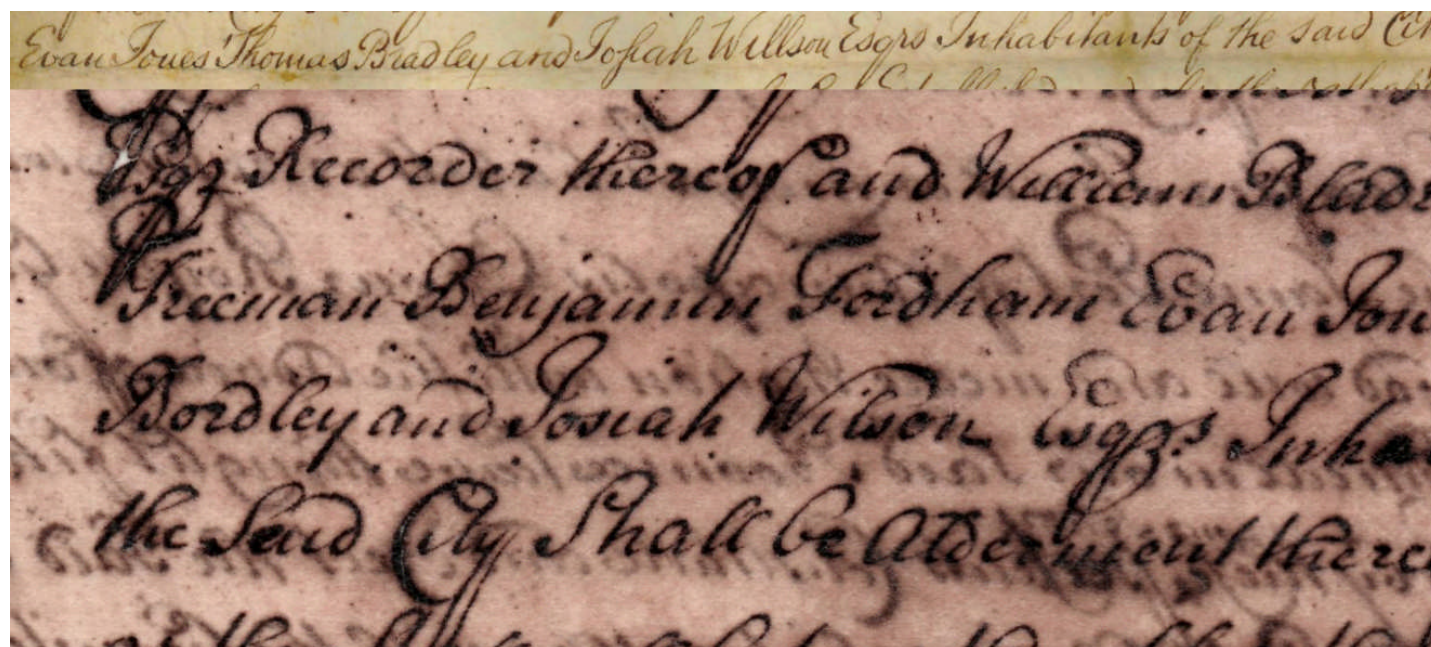 Evan Jones Thomas Bradley and Josiah Willson Esqrs Inhabitants of the said
Esqr Recorder thereof and William Blade
Freeman Benjamin Fordham Evan Jon
Bordley and Josiah Wilson Esqrs Inha
the Said City Shall be Aldermen there